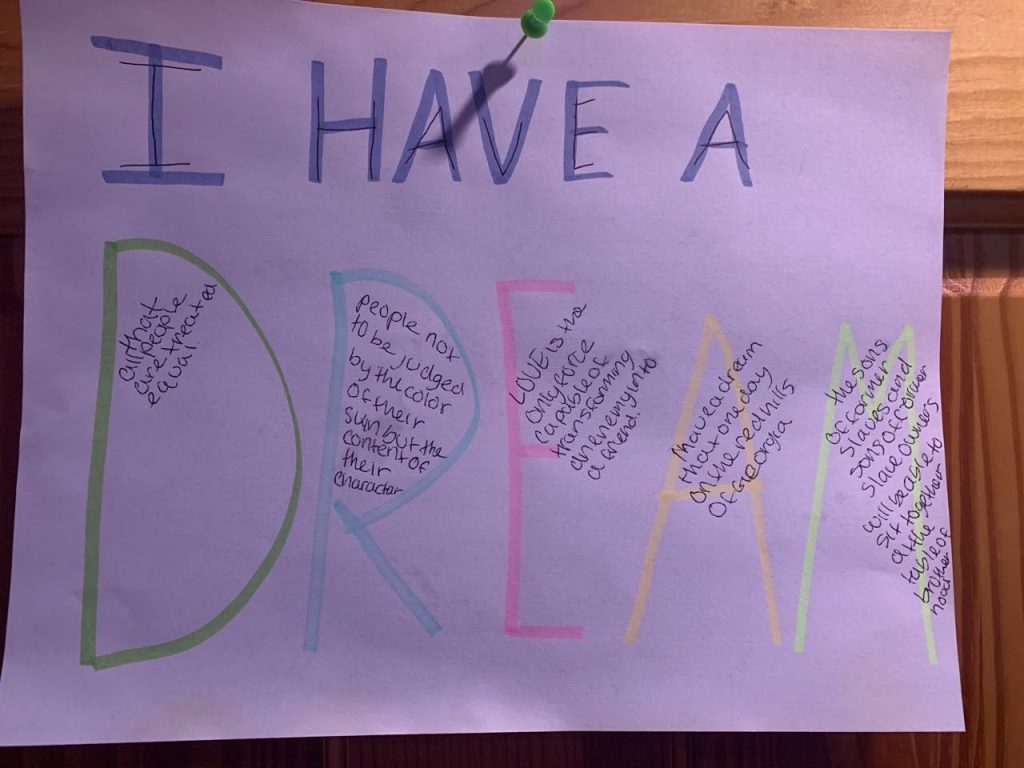 I HAVE A
DREAM
all that
all people
are treated
equal
people not
to be judged
by the color
of their
skin but the
content of
their
character
LOVE is the
only force
capable of
transforming
an enemy into
a friend.
I have a dream
that one day
on the red hills
of Georgia
the sons
of former
slaves and
sons of former
slave owners
will be able to
sit together
at the
table of
brother
hood